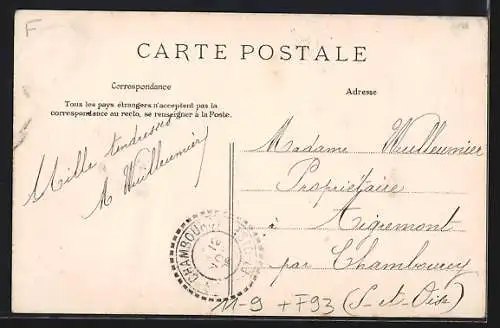 F
CARTE POSTALE
Correspondance
Adresse
Tous les pays étrangers n'acceptent pas la
correspondance au recto, se renseigner à la Poste.
Mille tendresses
M Wuilleumier
Madame Wuilleumier
Propriétaire
à Aigremont
par Chambourcy
(S-et-Oise)
CHAMBOURCY
11-9 + F93